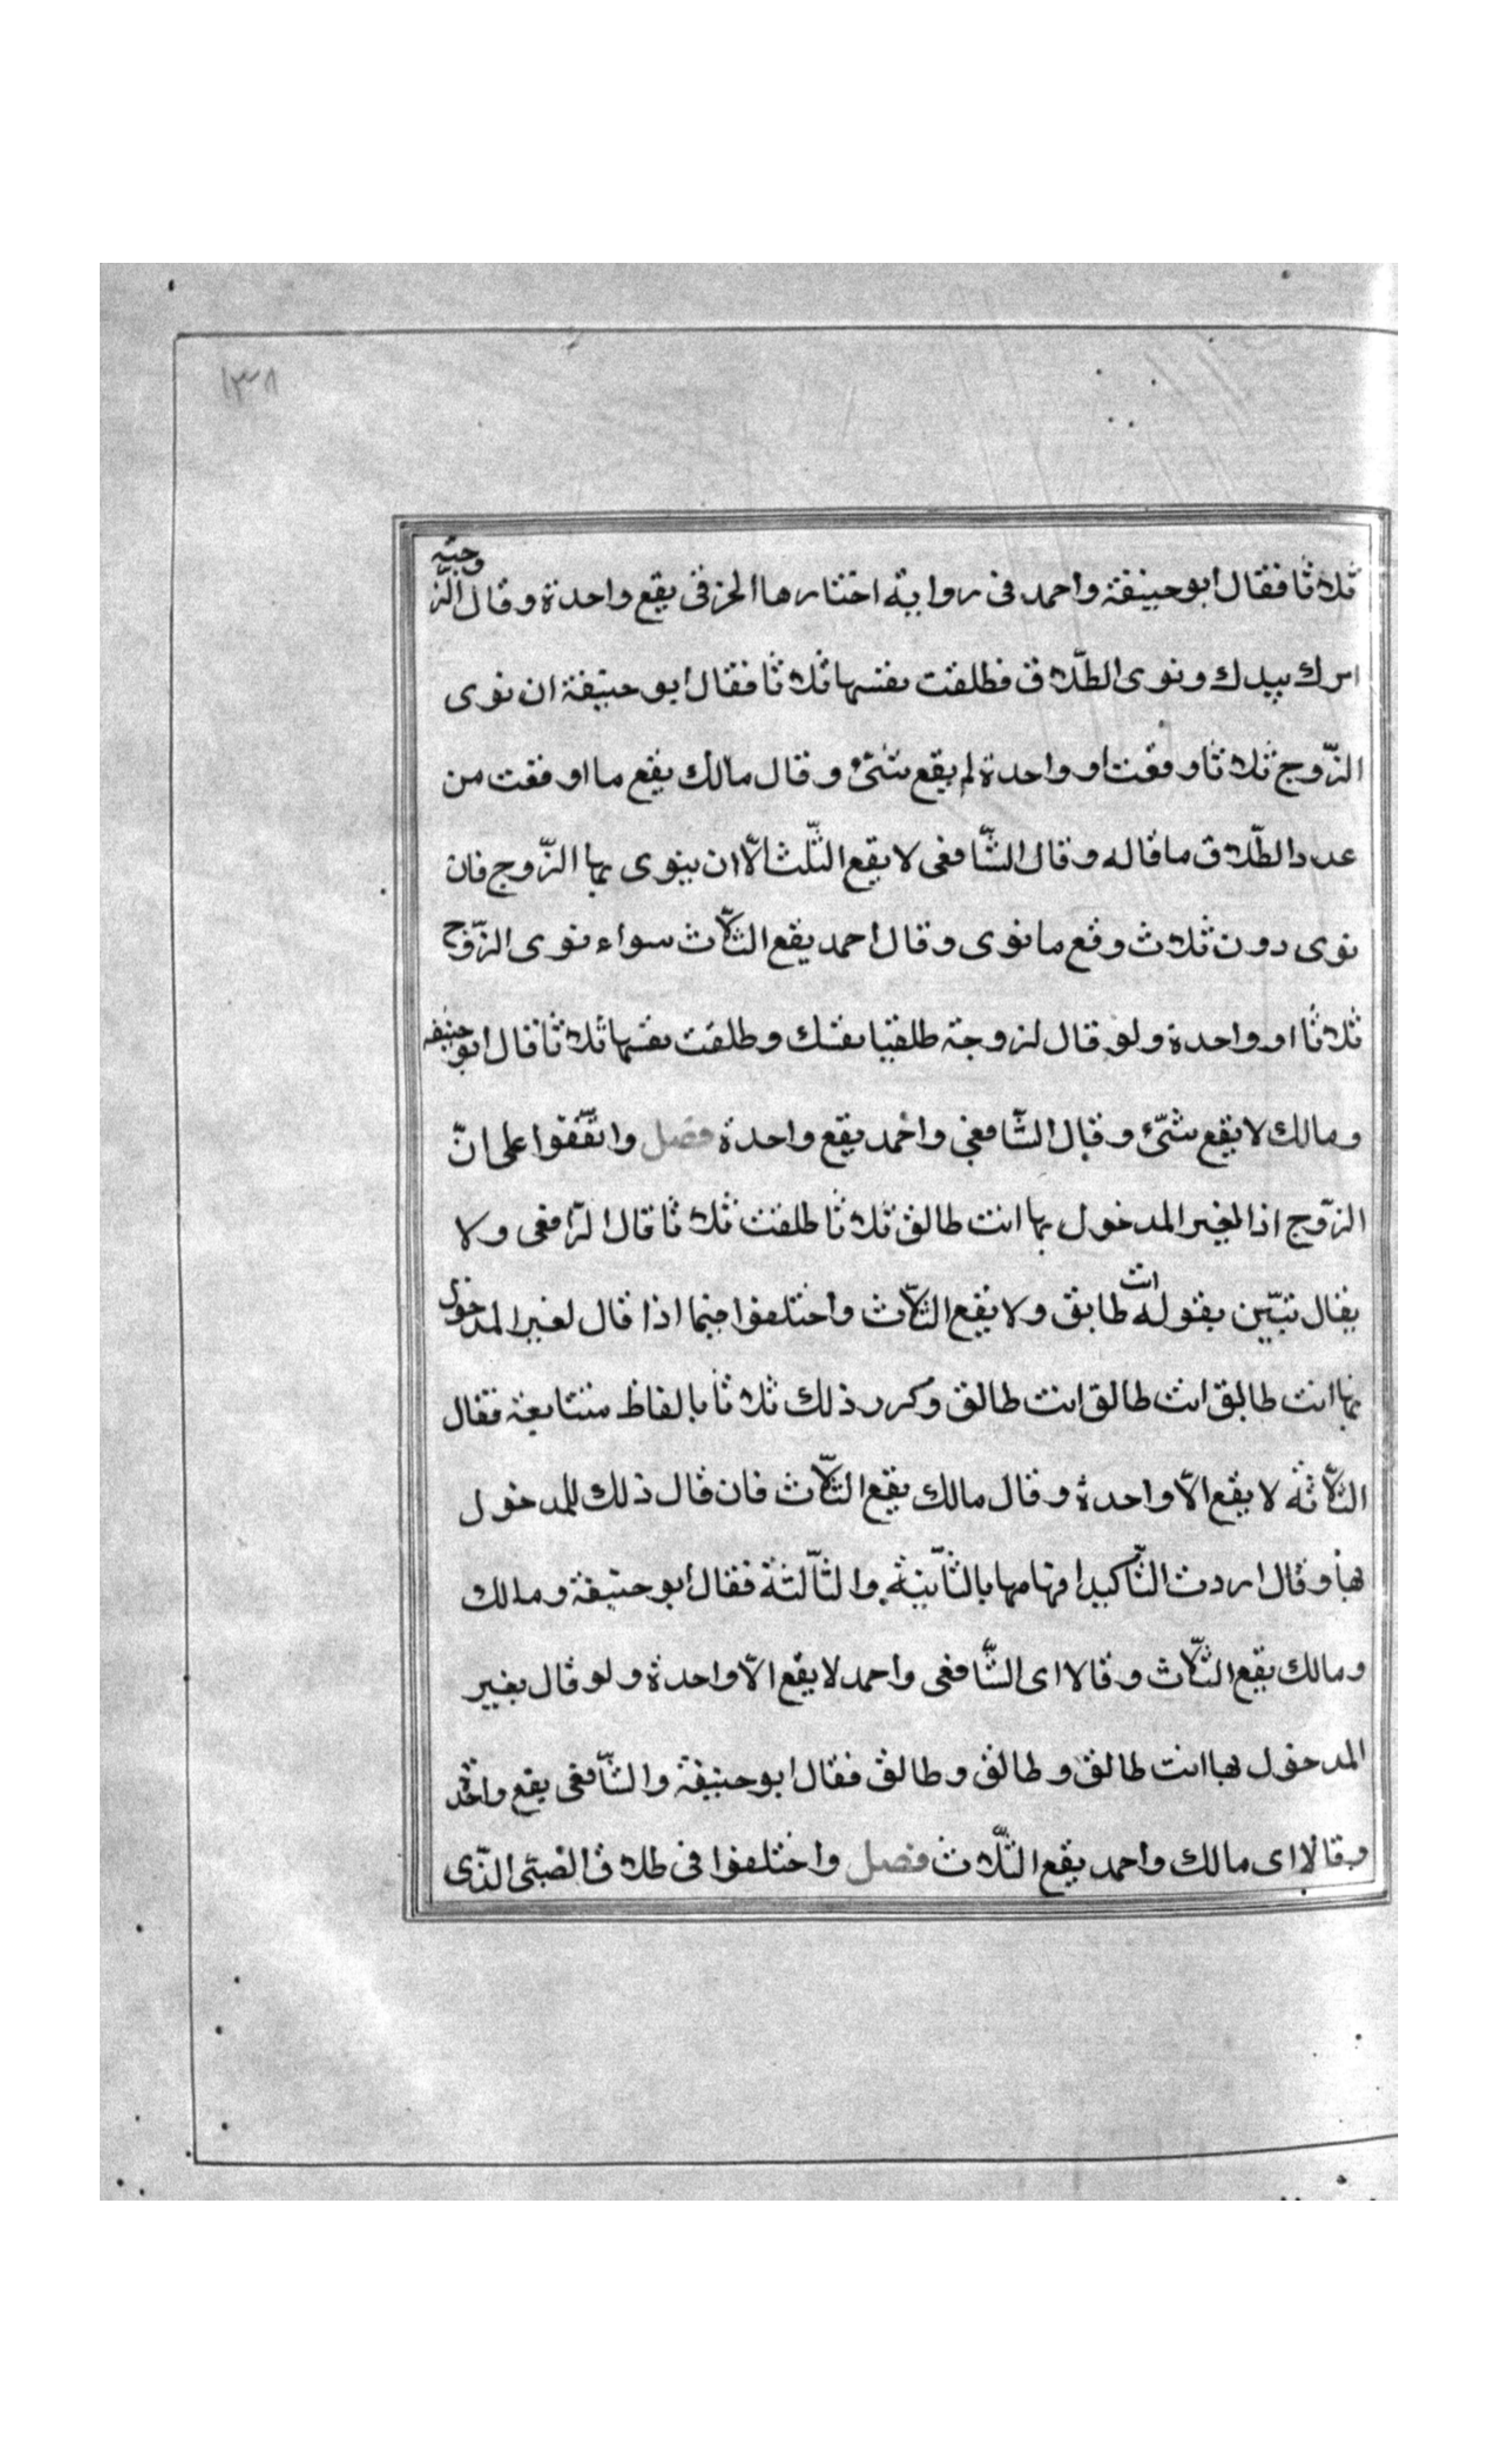 ١٣٨
ثلاثا فقال ابو حنيفة واحمد فى رواية اختارها الحزقى يقع واحدة وقال الزوجته
امرك بيدك ونوى الطّلاق فطلقت نفسها ثلاثا فقال ابو حنيفة ان نوى
الزّوج ثلاثا وقعت او واحدة لم يقع شئ وقال مالك يقع ما اوقعت من
عدد الطّلاق ماقاله وقال الشّافعى لا يقع الثّلث الّا ان ينوى بها الزّوج فان
نوى دون ثلاث وقع ما نوى وقال احمد يقع الثّلاث سواء نوى الزّوج
ثلاثا او واحدة ولو قال لزوجته طلقيا نفسك وطلقت نفسها ثلاثا قال ابو حنيفه
ومالك لا يقع شئ وقال الشّافعى واحمد يقع واحدة فصل واتّفقوا على انّ
الزّوج اذا لغير المدخول بها انت طالق ثلاثا طلقت ثلاثا قال الرّافعى ولا
يقال تبّين بقوله انت طالق ولا يقع الثّلاث واختلفوا فيما اذا قال لغير المدخول
بها انت طالق انت طالق انت طالق وكرر ذلك ثلاثا بالفاظ متتابعة فقال
الثّلاثة لا يقع الّا واحدة وقال مالك يقع الثّلاث فان قال ذلك للمدخول
بها وقال اردت التّأكيد افهامها بالثّانية والثّالثة فقال ابو حنيفة ومالك
ومالك يقع الثّلاث وقالا اى الشّافعى واحمد لا يقع الّا واحدة ولو قال بغير
المدخول بها انت طالق وطالق وطالق فقال ابو حنيفة والشّافعى يقع واحدة
وقالا اى مالك واحمد يقع الثّلاث فصل واختلفوا فى طلاق الصّبى الذّى